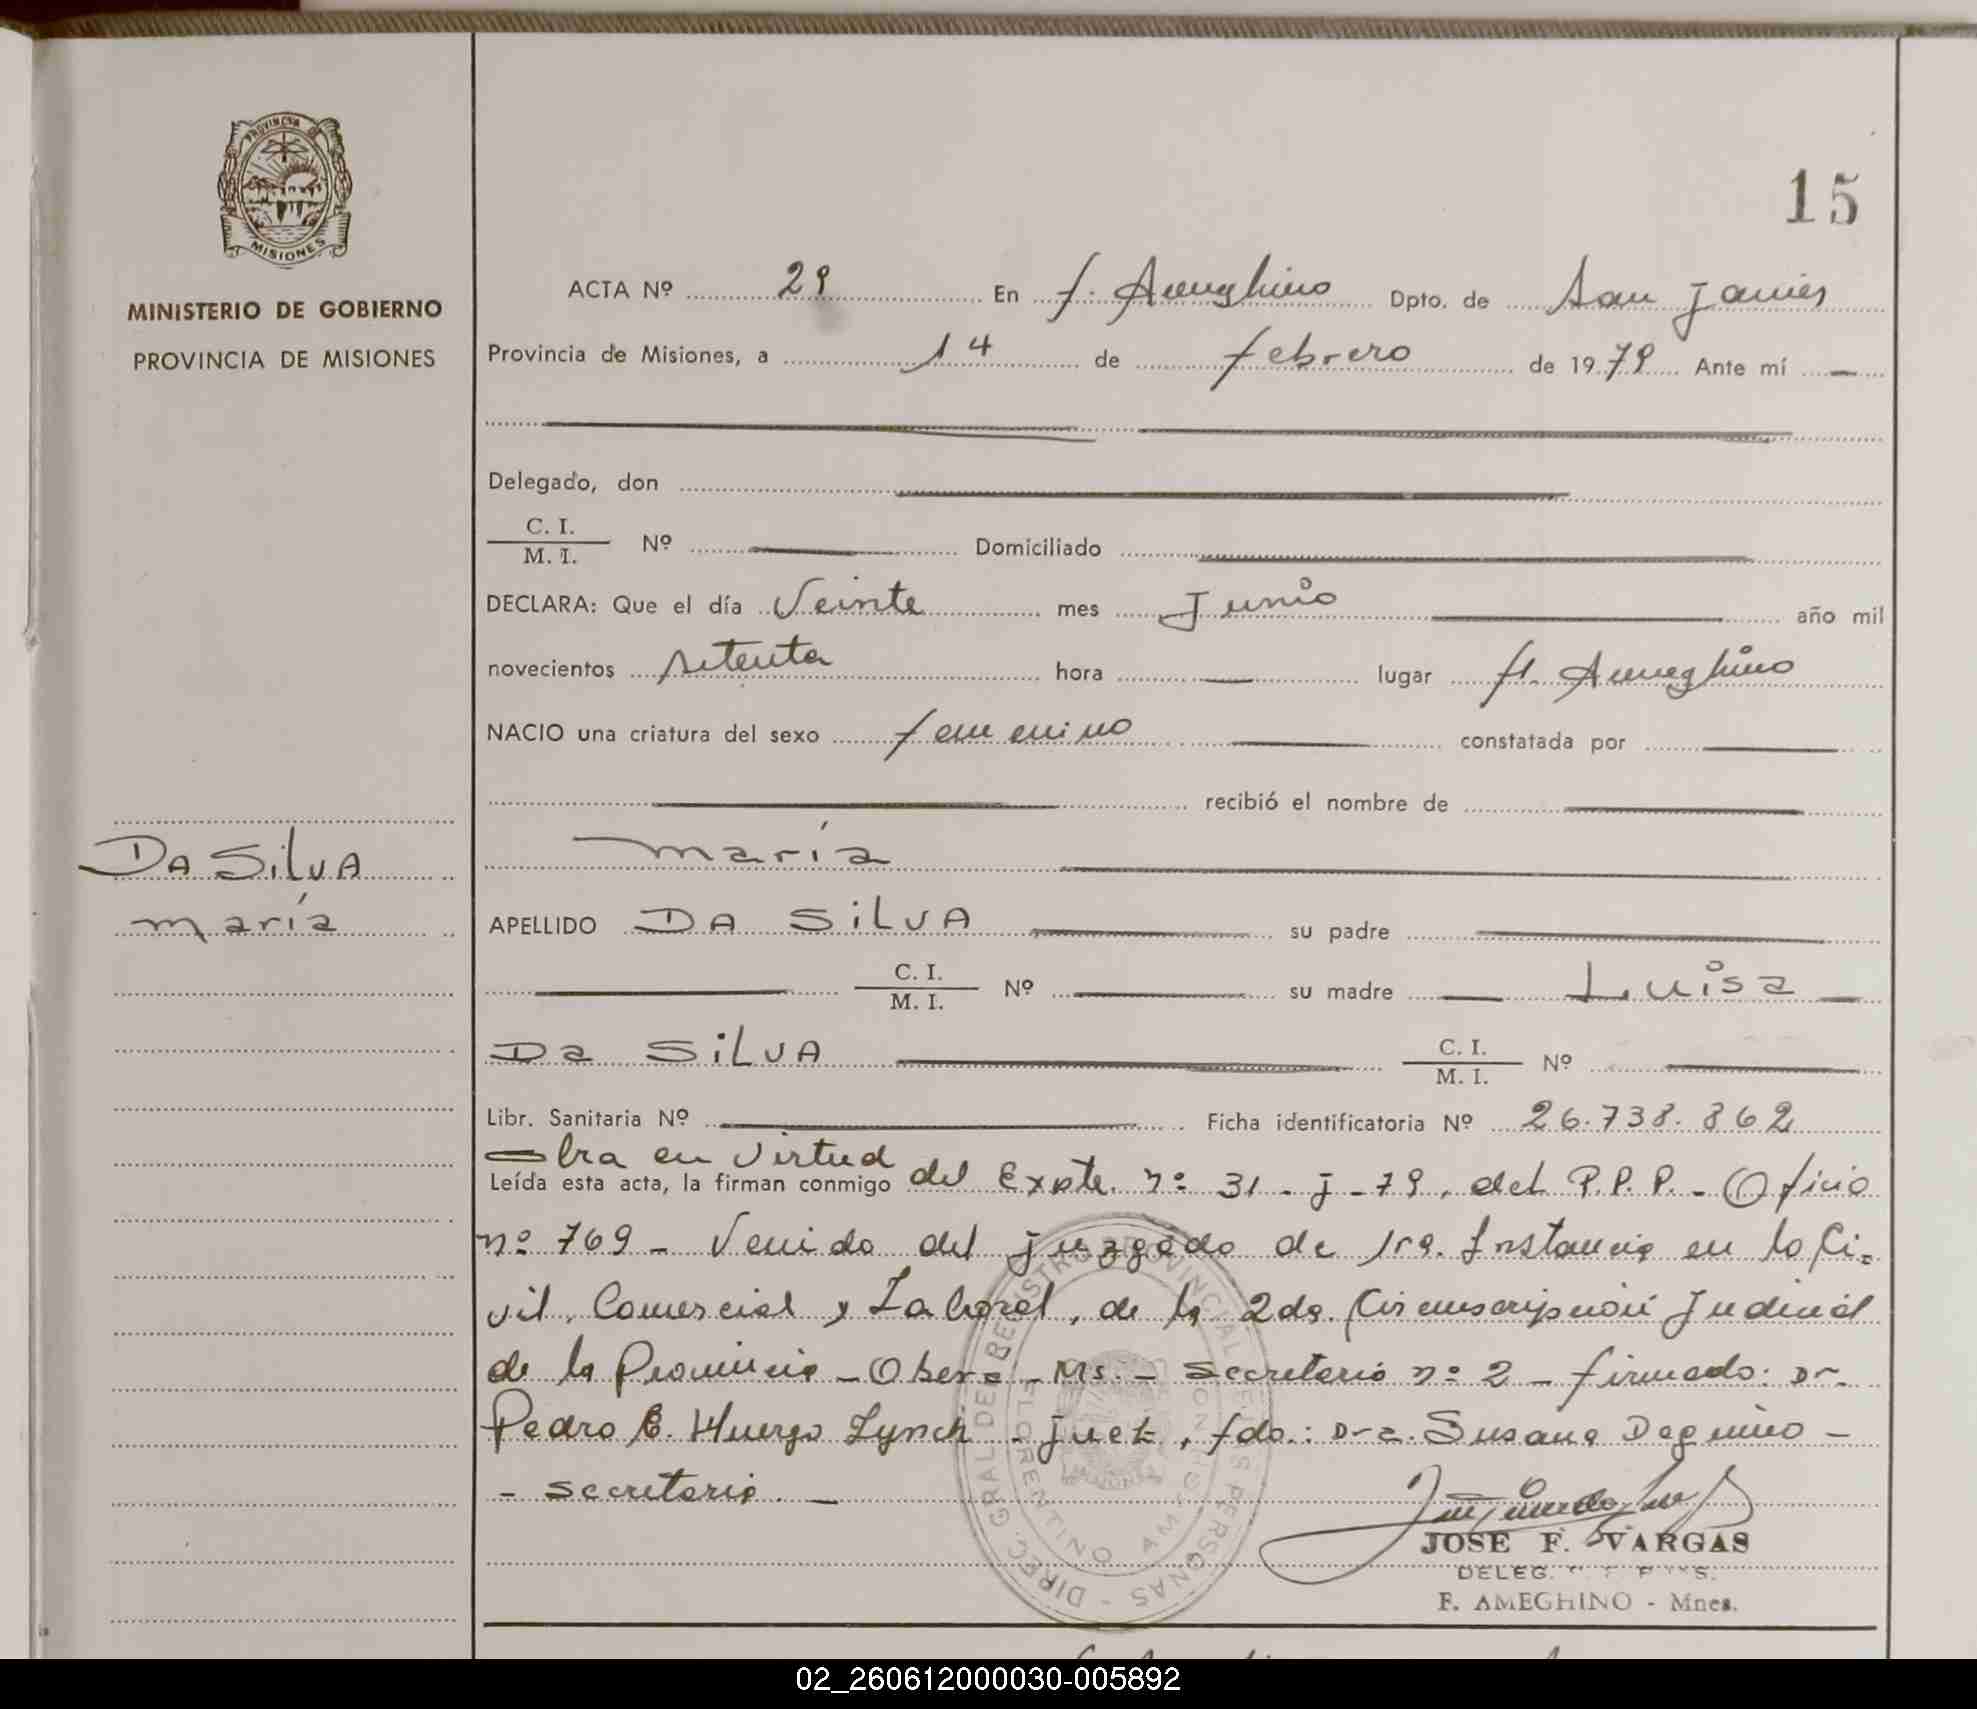 15
PROVINCIA DE
MISIONES
MINISTERIO DE GOBIERNO
PROVINCIA DE MISIONES
ACTA Nº 29 En f. Ameghino Dpto. de San Javier
Provincia de Misiones, a 14 de febrero de 1979 Ante mí
Delegado, don
C. I.
M. I. Nº Domiciliado
DECLARA: Que el día Veinte mes Junio año mil
novecientos setenta hora lugar fl. Ameghino
NACIO una criatura del sexo femenino constatada por
recibió el nombre de
maría
Da SilVA
maría
APELLIDO DA SilVA su padre
C. I.
M. I. Nº su madre Luisa
Da SilVA C. I.
M. I. Nº
Libr. Sanitaria Nº Ficha identificatoria Nº 26.738.862
obra en virtud
Leída esta acta, la firman conmigo del Expte. nº 31 - J - 79, del P.P.P. - Oficio
nº 769 - Venido del juzgado de 1ra. Instancia en lo Ci-
vil, Comercial y Laboral, de la 2da. Circunscripción Judicial
de la Provincia - Obera - Ms. - secretaría nº 2 - firmado: Dr.
Pedro E. Huergo Lynch - juez, fdo.: Dra. Susana
- secretaria. -
DIREC. GRAL DEL REGISTRO PROVINCIAL DE LAS PERSONAS
FLORENTINO AMEGHINO
JOSE F. VARGAS
DELEG.
F. AMEGHINO - Mnes.
02_260612000030-005892